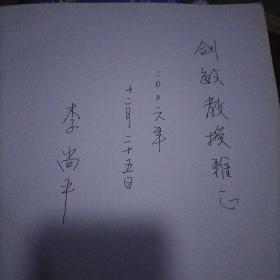 剑敏教授雅正
二〇〇六年
十二月二十五日
李尚平